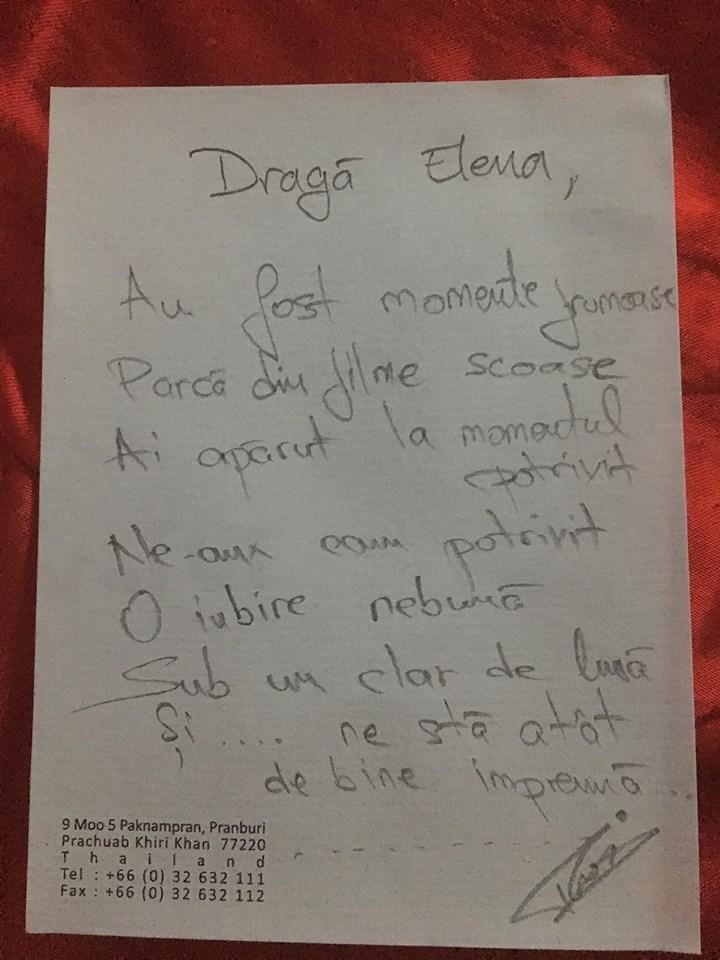 Dragă Elena,
Au fost momente frumoase
Parcă din filme scoase
Ai apărut la momentul
potrivit
Ne-am cam potrivit
O iubire nebună
Sub un clar de lună
Și .... ne stă atât
de bine impreună...
9 Moo 5 Paknampran, Pranburi
Prachuab Khiri Khan 77220
Thailand
Tel : +66 (0) 32 632 111
Fax : +66 (0) 32 632 112